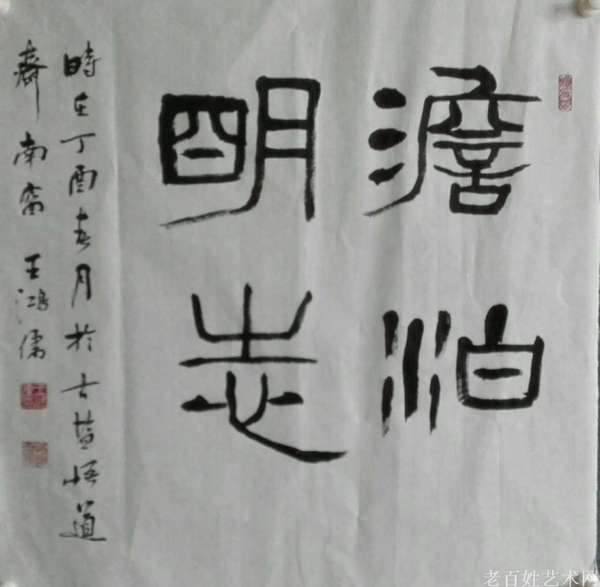 澹泊
明志
時在丁酉春月於古萱悟道
齋南窗王鴻儒
老百姓艺术网